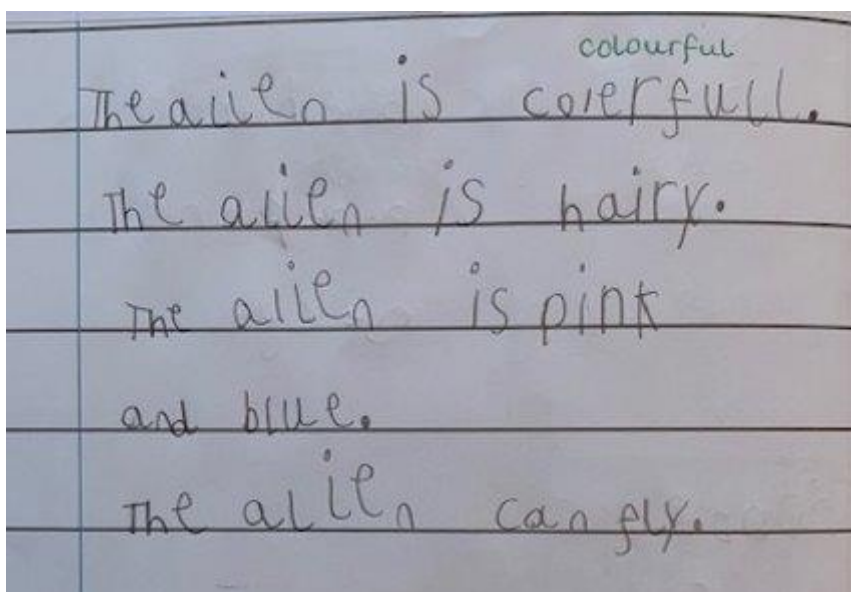 colourful
The aiien is colerfull.
The alien is hairy.
The alien is pink
and blue.
The alien can fly.